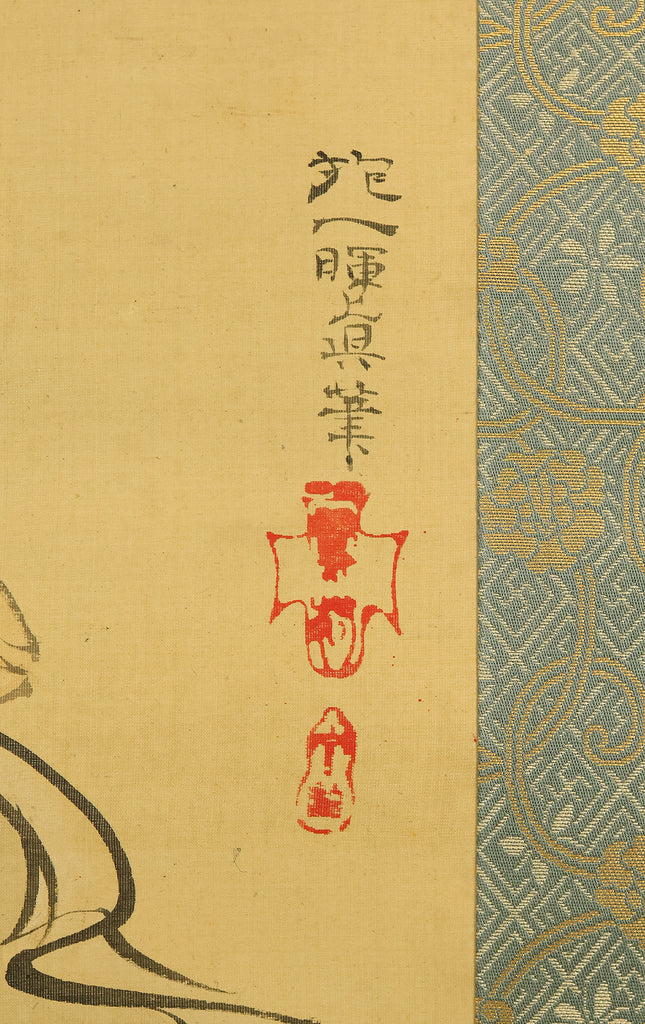 抱一暉眞筆